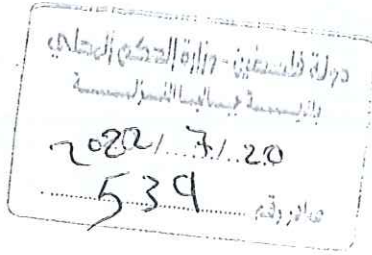 دولة فلسطين - وزارة الحكم المحلي
2022/7/20
صادر رقم 539